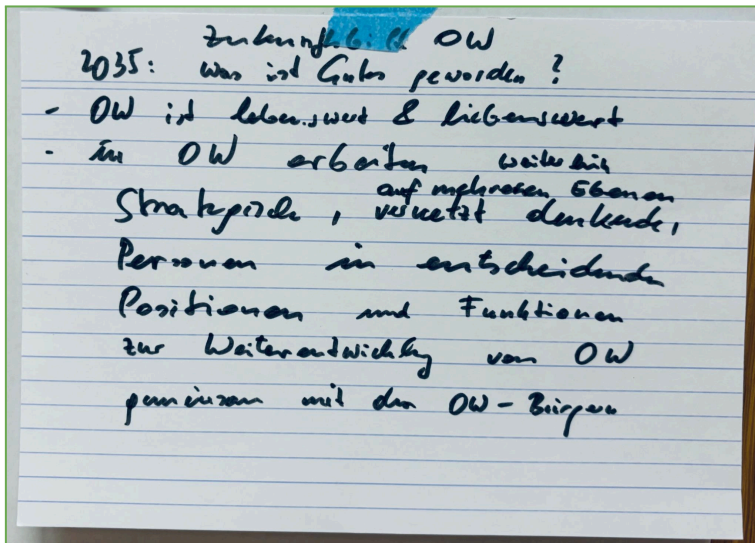 Zukunftsbild OW
2035: Was ist Gutes geworden?
- OW ist lebenswert & liebenswert
- in OW arbeiten weiterhin
auf mehreren Ebenen
Strategische, vernetzt denkende,
Personen in entscheidenden
Positionen und Funktionen
zur Weiterentwicklung von OW
gemeinsam mit den OW-Bürgern